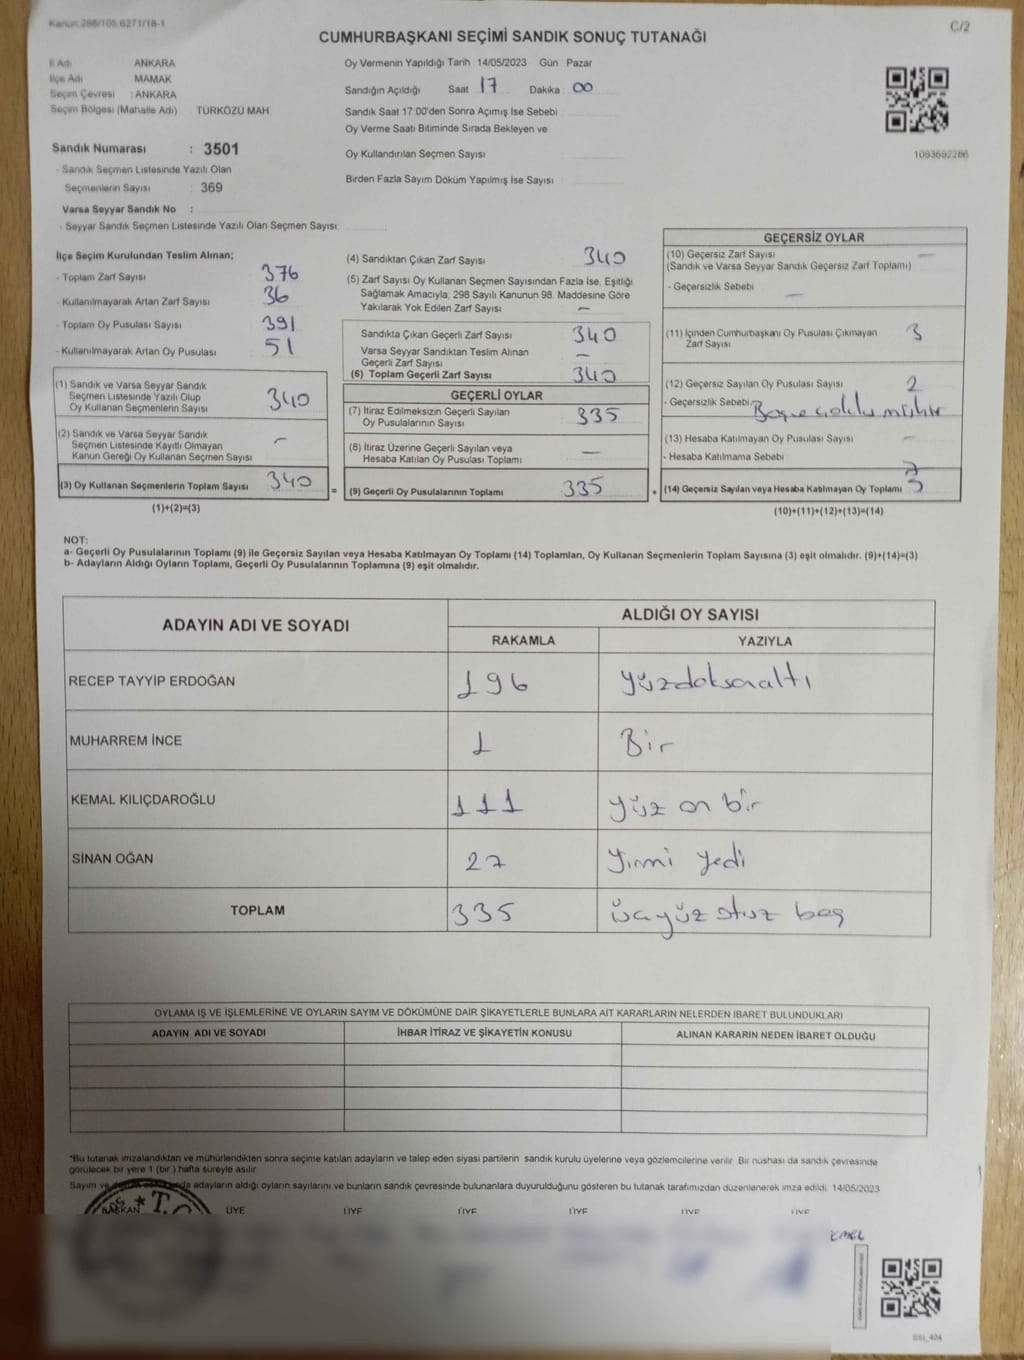 Kanun: 298/105.6271/18-1
C/2
CUMHURBAŞKANI SEÇİMİ SANDIK SONUÇ TUTANAĞI
İl Adı ANKARA
İlçe Adı MAMAK
Seçim Çevresi : ANKARA
Seçim Bölgesi (Mahalle Adı) TÜRKÖZÜ MAH
Sandık Numarası : 3501
- Sandık Seçmen Listesinde Yazılı Olan
Seçmenlerin Sayısı : 369
Varsa Seyyar Sandık No :
- Seyyar Sandık Seçmen Listesinde Yazılı Olan Seçmen Sayısı:
Oy Vermenin Yapıldığı Tarih : 14/05/2023 Gün : Pazar
Sandığın Açıldığı Saat : 17 Dakika : 00
Sandık Saat 17:00'den Sonra Açımış İse Sebebi
Oy Verme Saati Bitiminde Sırada Bekleyen ve
Oy Kullandırılan Seçmen Sayısı
Birden Fazla Sayım Döküm Yapılmış İse Sayısı
1093692286
İlçe Seçim Kurulundan Teslim Alınan;
- Toplam Zarf Sayısı : 376
- Kullanılmayarak Artan Zarf Sayısı : 36
- Toplam Oy Pusulası Sayısı : 391
- Kullanılmayarak Artan Oy Pusulası : 51
(1) Sandık ve Varsa Seyyar Sandık
Seçmen Listesinde Yazılı Olup
Oy Kullanan Seçmenlerin Sayısı : 340
(2) Sandık ve Varsa Seyyar Sandık
Seçmen Listesinde Kayıtlı Olmayan
Kanun Gereği Oy Kullanan Seçmen Sayısı : -
(3) Oy Kullanan Seçmenlerin Toplam Sayısı : 340
(1)+(2)=(3)
(4) Sandıktan Çıkan Zarf Sayısı : 340
(5) Zarf Sayısı Oy Kullanan Seçmen Sayısından Fazla İse, Eşitliği
Sağlamak Amacıyla, 298 Sayılı Kanunun 98. Maddesine Göre
Yakılarak Yok Edilen Zarf Sayısı : -
Sandıkta Çıkan Geçerli Zarf Sayısı : 340
Varsa Seyyar Sandıktan Teslim Alınan
Geçerli Zarf Sayısı : -
(6) Toplam Geçerli Zarf Sayısı : 340
GEÇERLİ OYLAR
(7) İtiraz Edilmeksizin Geçerli Sayılan
Oy Pusulalarının Sayısı : 335
(8) İtiraz Üzerine Geçerli Sayılan veya
Hesaba Katılan Oy Pusulası Toplamı : -
= (9) Geçerli Oy Pusulalarının Toplamı : 335 +
GEÇERSİZ OYLAR
(10) Geçersiz Zarf Sayısı : -
(Sandık ve Varsa Seyyar Sandık Geçersiz Zarf Toplamı)
- Geçersizlik Sebebi : -
(11) İçinden Cumhurbaşkanı Oy Pusulası Çıkmayan
Zarf Sayısı : 3
(12) Geçersiz Sayılan Oy Pusulası Sayısı : 2
- Geçersizlik Sebebi:
(13) Hesaba Katılmayan Oy Pusulası Sayısı : -
- Hesaba Katılmama Sebebi :
(14) Geçersiz Sayılan veya Hesaba Katılmayan Oy Toplamı :
(10)+(11)+(12)+(13)=(14)
NOT:
a- Geçerli Oy Pusulalarının Toplamı (9) ile Geçersiz Sayılan veya Hesaba Katılmayan Oy Toplamı (14) Toplamları, Oy Kullanan Seçmenlerin Toplam Sayısına (3) eşit olmalıdır. (9)+(14)=(3)
b- Adayların Aldığı Oyların Toplamı, Geçerli Oy Pusulalarının Toplamına (9) eşit olmalıdır.
ADAYIN ADI VE SOYADI ALDIĞI OY SAYISI
RAKAMLA YAZIYLA
RECEP TAYYİP ERDOĞAN 196 yüzdoksanaltı
MUHARREM İNCE 1 Bir
KEMAL KILIÇDAROĞLU 111 yüz on bir
SİNAN OĞAN 27 yirmi yedi
TOPLAM 335 üçyüz otuz beş
OYLAMA İŞ VE İŞLEMLERİNE VE OYLARIN SAYIM VE DÖKÜMÜNE DAİR ŞİKAYETLERLE BUNLARA AİT KARARLARIN NELERDEN İBARET BULUNDUKLARI
ADAYIN ADI VE SOYADI İHBAR İTİRAZ VE ŞİKAYETİN KONUSU ALINAN KARARIN NEDEN İBARET OLDUĞU
*Bu tutanak imzalandıktan ve mühürlendikten sonra seçime katılan adayların ve talep eden siyasi partilerin sandık kurulu üyelerine veya gözlemcilerine verilir. Bir nüshası da sandık çevresinde
görülecek bir yere 1 (bir ) hafta süreyle asılır.
Sayım ve adayların aldığı oyların sayılarını ve bunların sandık çevresinde bulunanlara duyurulduğunu gösteren bu tutanak tarafımızdan düzenlenerek imza edildi. 14/05/2023
BAŞKAN ÜYE ÜYE ÜYE ÜYE ÜYE ÜYE
T.C.
EMEL
SSI_404